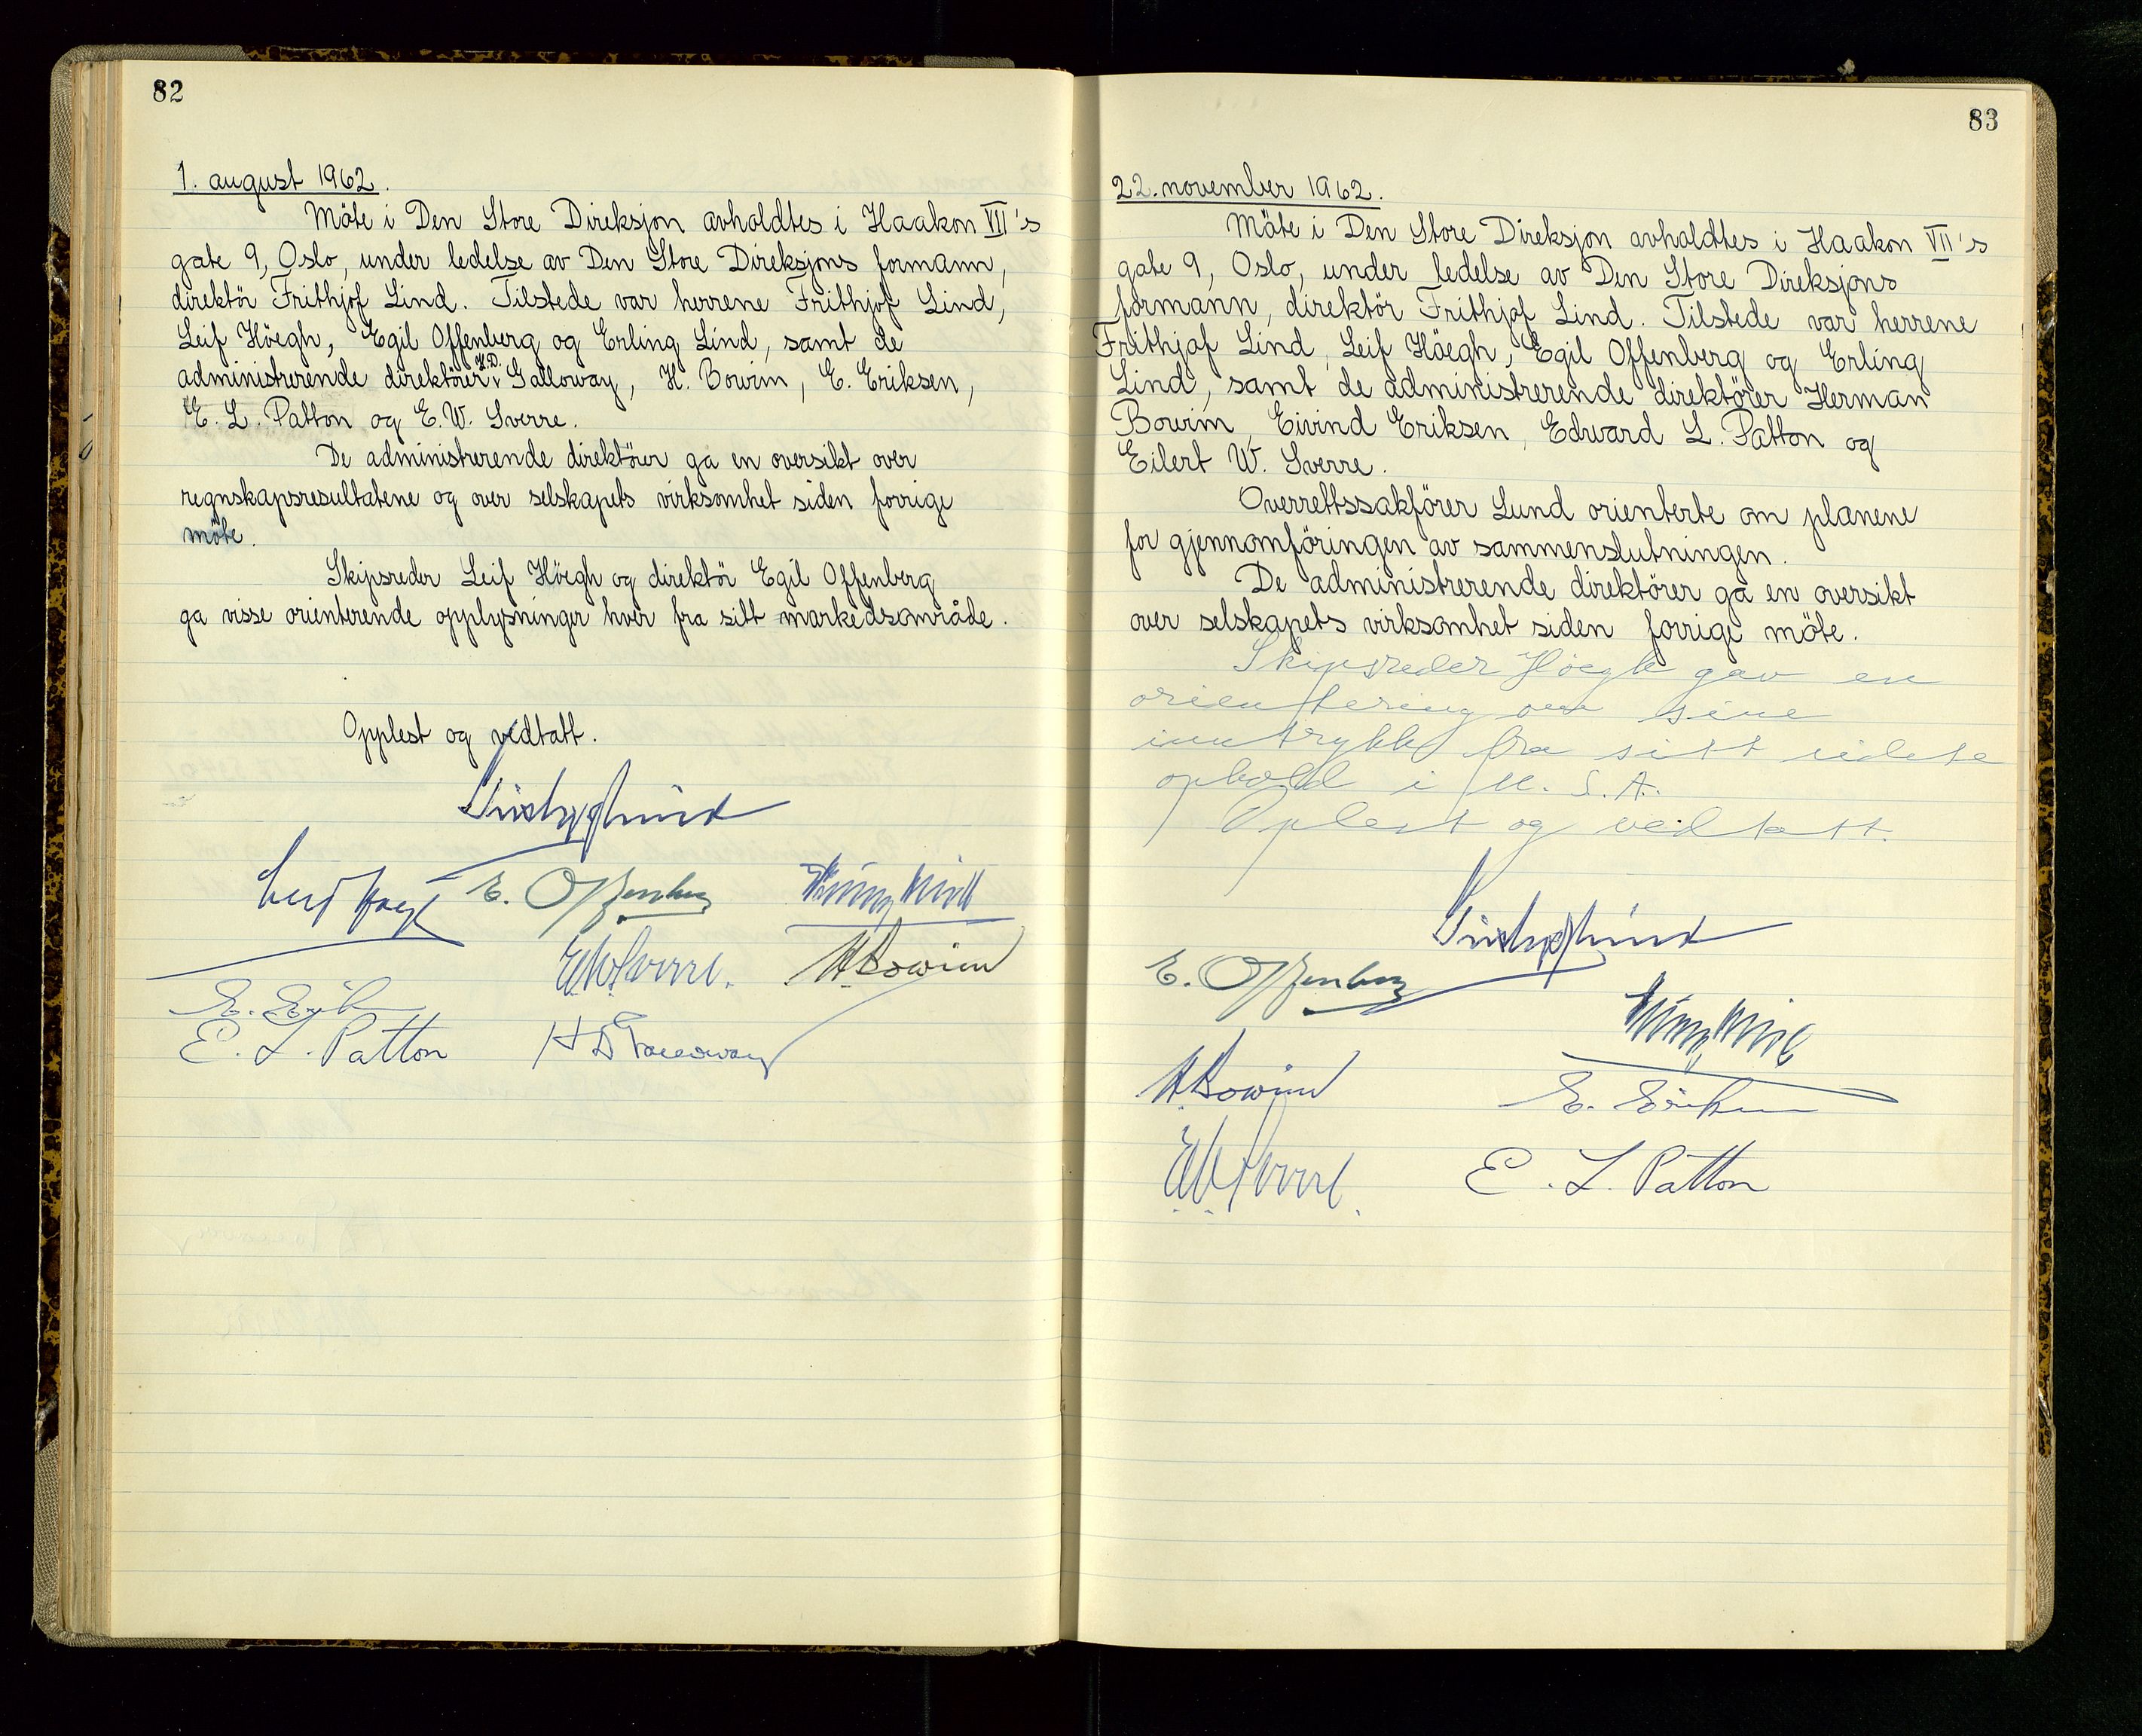 82
1. august 1962.
Möte i Den Store Direksjon avholdtes i Haakon VII's
gate 9, Oslo, under ledelse av Den Store Direksjons formann,
direktör Frithjof Lind. Tilstede var herrene Frithjof Lind,
Leif Höegh, Egil Offenberg og Erling Lind, samt de
administrerende direktörer H.D. Galloway, H. Bowim, E. Eriksen,
E. L. Patton og E. W. Sverre.
De administrerende direktörer ga en oversikt over
regnskapsresultatene og over selskapets virksomhet siden forrige
möte.
Skipsreder Leif Höegh og direktör Egil Offenberg
ga visse orienterende opplysninger hver fra sitt markedsområde.
Opplest og vedtatt.
Frithjof Lind
Leif Höegh E. Offenberg Erling Lind
E W Sverre. H Bowim
E. Eriksen
E. L. Patton H D Galloway
83
22. november 1962.
Möte i Den Store Direksjon avholdtes i Haakon VII's
gate 9, Oslo, under ledelse av Den Store Direksjons
formann, direktör Frithjof Lind. Tilstede var herrene
Frithjof Lind, Leif Höegh, Egil Offenberg og Erling
Lind, samt de administrerende direktörer Herman
Bowim, Eivind Eriksen, Edward L. Patton og
Eilert W. Sverre.
Overrettssakförer Lund orienterte om planene
for gjennomföringen av sammenslutningen.
De administrerende direktörer ga en oversikt
over selskapets virksomhet siden forrige möte.
Skipsreder Höegh gav en
orientering om sine
inntrykk fra sitt sidste
ophold i U.S.A.
Oplest og vedtatt.
Frithjof Lind
E. Offenberg
Erling Lind
H Bowim
E. Eriksen
E W Sverre.
E. L. Patton